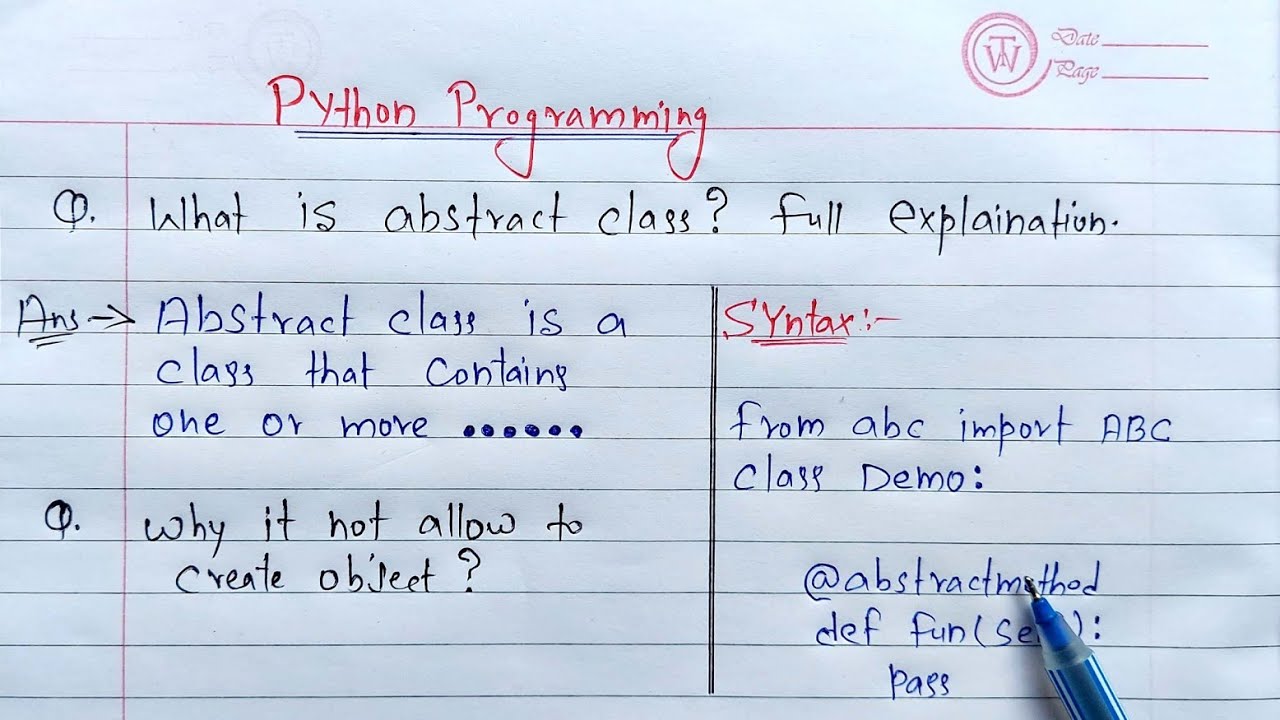 Date
Page
Python Programming
Q. What is abstract class? full explaination.
Ans → Abstract class is a
class that contains
one or more ......
Q. Why it not allow to
create object?
Syntax:-
from abc import ABC
class Demo:
@abstractmethod
def fun(self):
pass